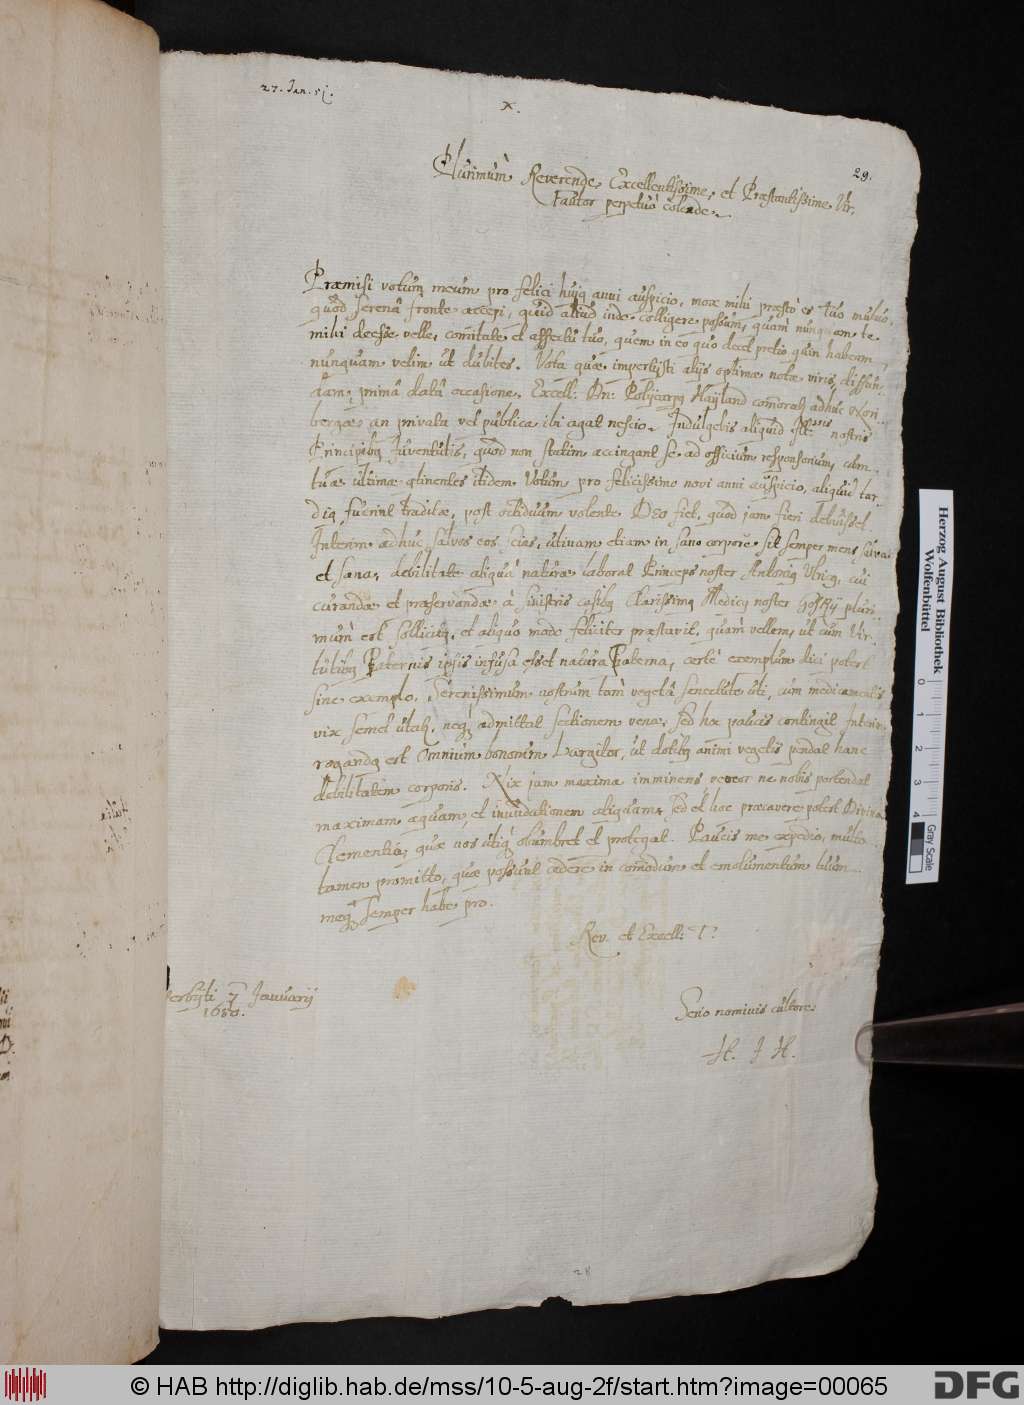 27. Jan. 51.
x.
29.
Plurimùm Reverende, Excellentissime, et Præstantissime Vir,
Fautor perpetuò colende.
Præmisi votum meum pro felici hujq anni auspicio, mox mihi præstò es tuo mutuo,
quod serenâ fronte accepi, quid aliud inde colligere possum, quàm nunquam te
mihi deesse velle, comitate et affectu tuo, quem in eo quo decet pretio quin habeam
nunquam velim ut dubites. Vota quæ impertijsti alijs optimæ notæ viris, diffun-
dam, primâ datâ occasione. Excell: Dn: Polycarpq Haÿland adhuc
bergæ, an privata vel publica ibi agat nescio. Indulgebis aliquid nostris
Principibq Juventutis, quod non statim accingant se ad officium responsorium, cùm
tuæ ultimæ itidem Votum pro felicissimo novi anni auspicio, aliquid tar-
diq fuerint traditæ, post octiduum volente Deo fiet, quod jam fieri debuisset.
Interim adhuc salvos eos scias, utinam etiam in sano corpore sit semper mens salva
et sana, debilitate aliquâ naturæ laborat Princeps noster Antoniq Ulricq, cui
curandæ et præservandæ à sinistris casibq Clarissimq Medicq noster pluri-
mùm est sollicitq, et aliquo modo feliciter præstavit, quàm vellem, ut cum Vir-
tutibq Paternis ipsis infusa esset natura Paterna, certè exemplum dici potest
sine exemplo, Serenissimum nostrum tàm vegetâ senectute uti, cùm medicamentis
vix semel utatr, neq admittat sectionem venæ, sed hoc paucis contingit Interim
rogandq est Omnium bonorum Largitor, ut dotibq animi vegetis hanc
debilitatem corporis. Nix jam maxima imminens vereor ne nobis portendat
maximam aquam, et inundationem aliquam, sed et hoc præcavere potest Divina
Clementia, quæ vos utiq obumbret et protegat. Paucis me expedio, multo
tamen promitto, quæ possunt cedere in comodum et emolumentum tuum
meq semper habe pro.
Rev. et Excell: T:
7 Januarij
1650.
Serio nominis cultore
H. J H.
28
Herzog August Bibliothek
Wolfenbüttel
0 1 2 3 4
Gray Scale
© HAB http://diglib.hab.de/mss/10-5-aug-2f/start.htm?image=00065
DFG